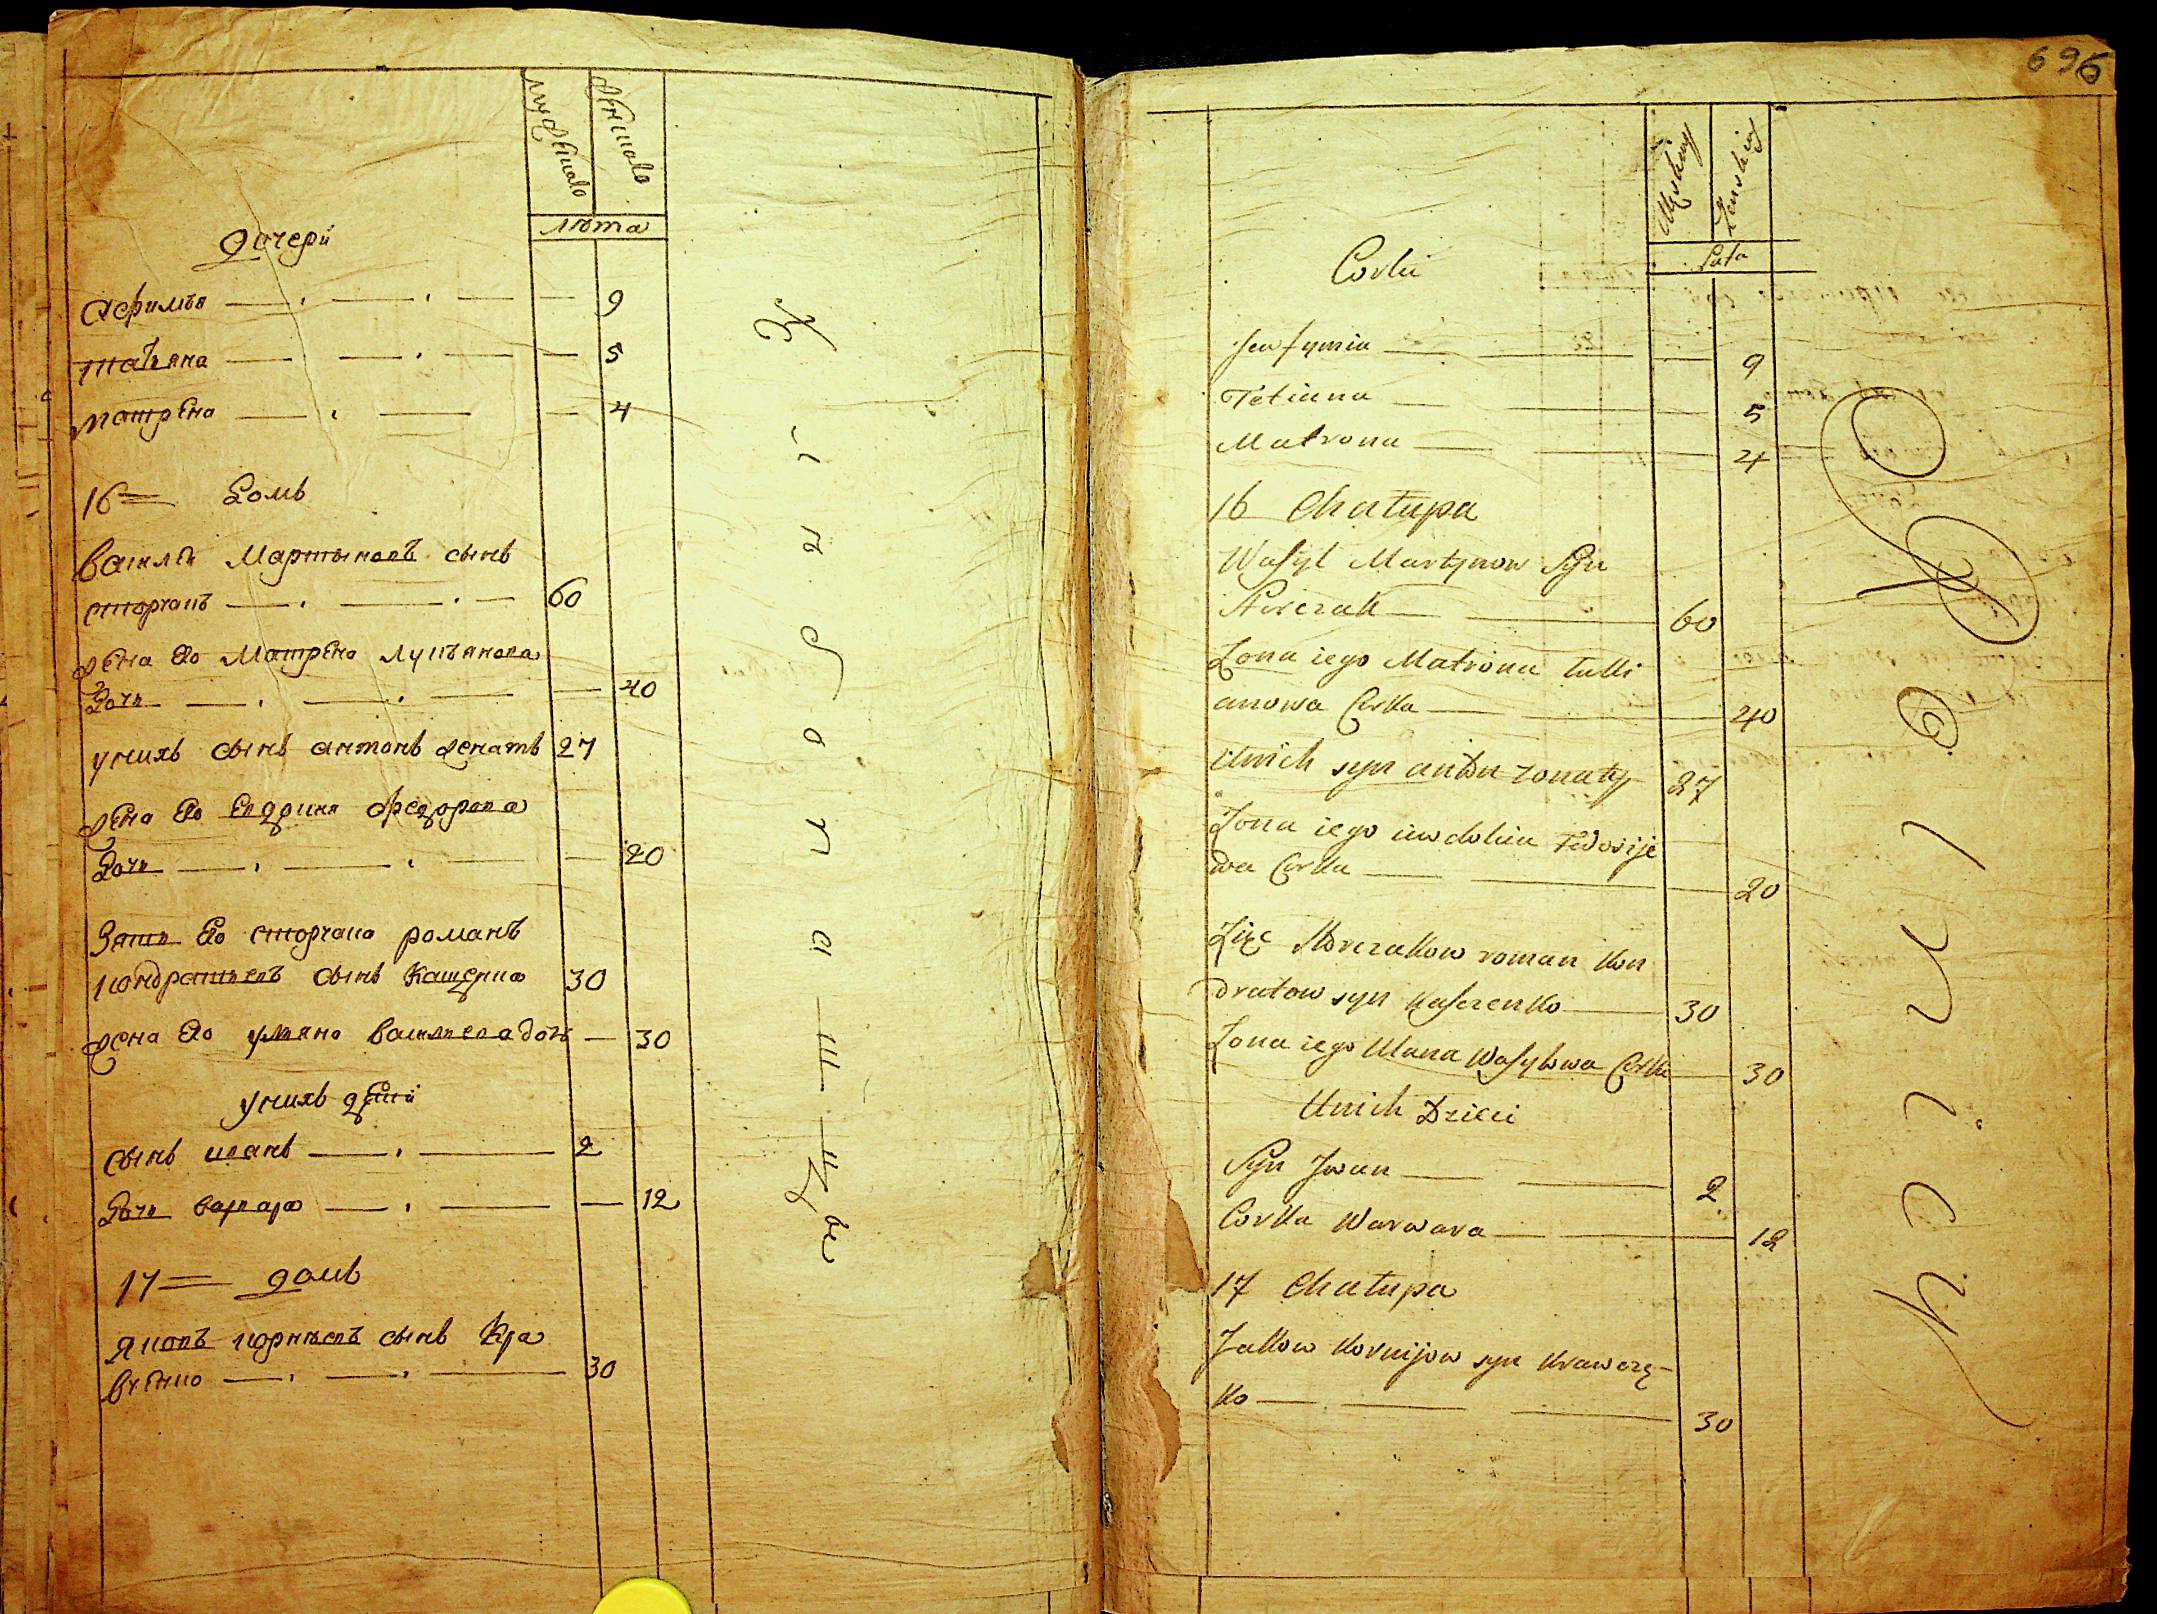 мужеска
женска
лѣта
дочери
Афимья 9
татьяна 5
матрена 4
16 Домъ
василеи Мартыновъ сынъ
сторчакъ 60
жена его Матрена лукъянова
дочь 40
унихъ сынъ антонъ женатъ 27
жена его Евдокия федорова
дочь 20
Зять его сторчака романъ
кондратьевъ сынъ Кащенко 30
жена его ульяна василева дочь 30
унихъ дети
сынъ иванъ 2
дочь варвара 12
17 домъ
яковъ корнѣевъ сынъ Кра
вченко 30
696
Męskiey
Zenskiey
Lata
Corki
Jeufymia 9
Tetianna 5
Matrona 4
16 Chatupa
Wasyl Martynow Syn
Storczak 60
Zona iego Matrona Luki
anowa Corka 40
Unich syn anton zonaty 27
Zona iego iewdokia Fedosije
wa Corka 20
Zięc Storczakow roman Kon
dratow syn Kasczenko 30
Zona iego Ulana Wasylowa Corka 30
Unich Dzieci
Syn Jwan 2
Corka Warwara 12
17 Chatupa
Jakow Kornijow syn Krawczę-
ko 30